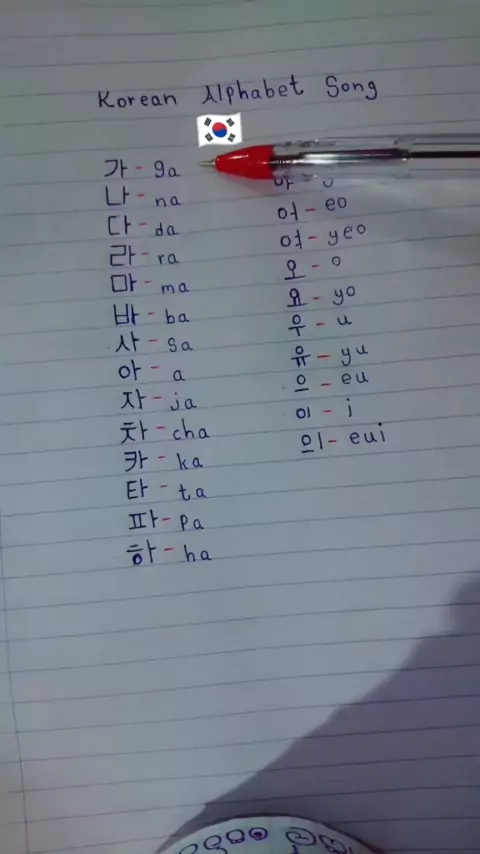 Korean Alphabet Song
가 - ga
나 - na
다 - da
라 - ra
마 - ma
바 - ba
사 - sa
아 - a
자 - ja
차 - cha
카 - ka
타 - ta
파 - pa
하 - ha
어 - eo
여 - yeo
오 - o
요 - yo
우 - u
유 - yu
으 - eu
이 - i
의 - eui